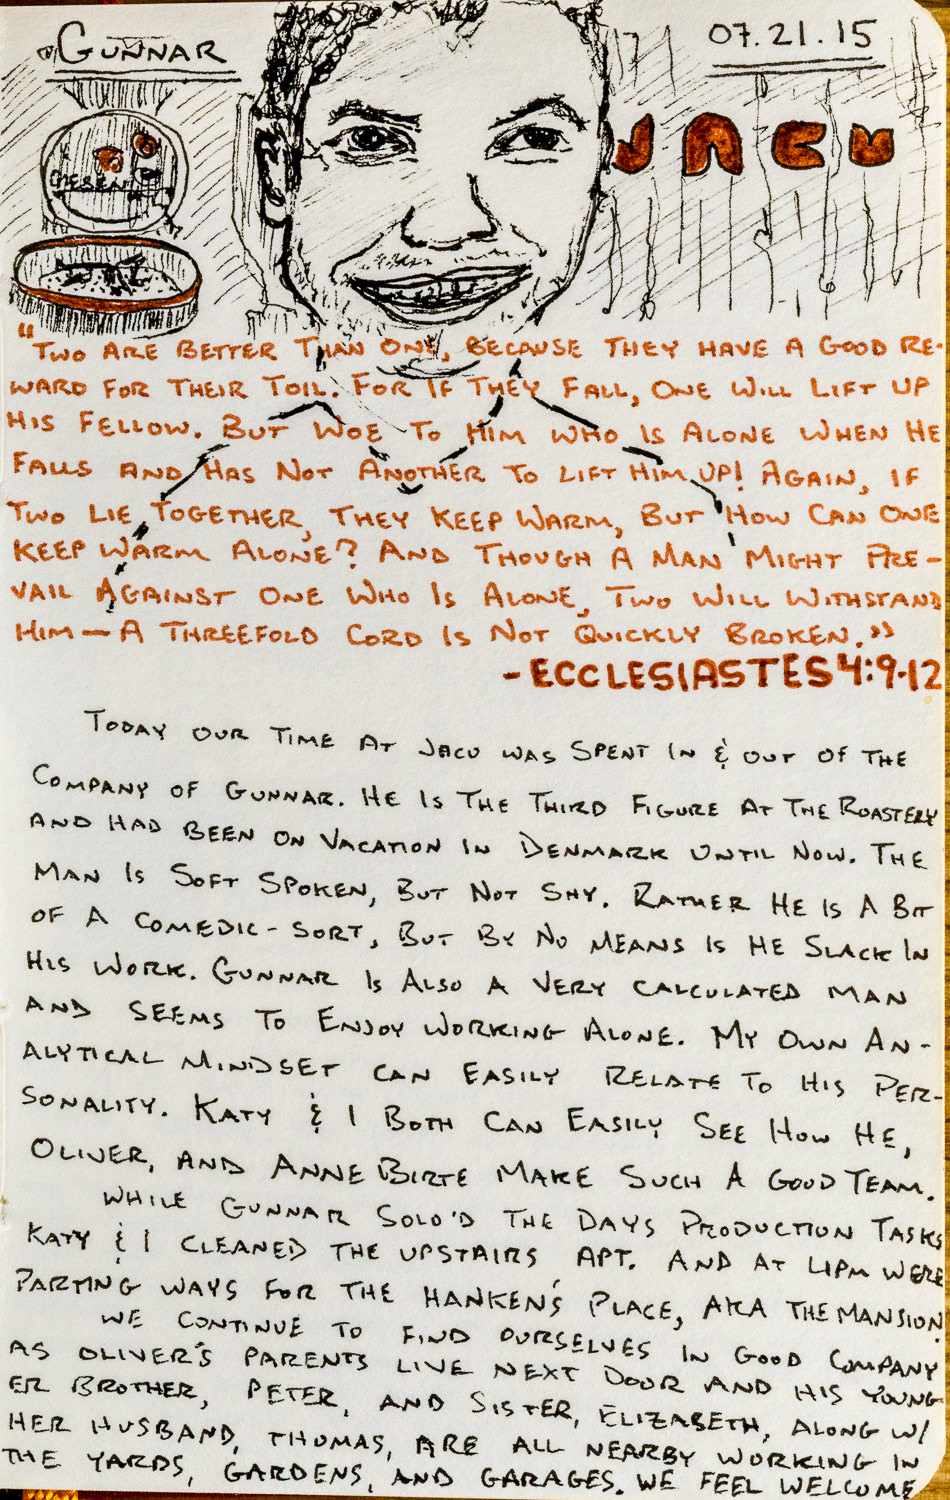 GUNNAR
07.21.15
GIESEN
JACU
"TWO ARE BETTER THAN ONE, BECAUSE THEY HAVE A GOOD RE-
WARD FOR THEIR TOIL. FOR IF THEY FALL, ONE WILL LIFT UP
HIS FELLOW. BUT WOE TO HIM WHO IS ALONE WHEN HE
FALLS AND HAS NOT ANOTHER TO LIFT HIM UP! AGAIN, IF
TWO LIE TOGETHER, THEY KEEP WARM, BUT HOW CAN ONE
KEEP WARM ALONE? AND THOUGH A MAN MIGHT PRE-
VAIL AGAINST ONE WHO IS ALONE, TWO WILL WITHSTAND
HIM—A THREEFOLD CORD IS NOT QUICKLY BROKEN."
-ECCLESIASTES 4:9-12
TODAY OUR TIME AT JACU WAS SPENT IN & OUT OF THE
COMPANY OF GUNNAR. HE IS THE THIRD FIGURE AT THE ROASTERY
AND HAD BEEN ON VACATION IN DENMARK UNTIL NOW. THE
MAN IS SOFT SPOKEN, BUT NOT SHY. RATHER HE IS A BIT
OF A COMEDIC-SORT, BUT BY NO MEANS IS HE SLACK IN
HIS WORK. GUNNAR IS ALSO A VERY CALCULATED MAN
AND SEEMS TO ENJOY WORKING ALONE. MY OWN AN-
ALYTICAL MINDSET CAN EASILY RELATE TO HIS PER-
SONALITY. KATY & I BOTH CAN EASILY SEE HOW HE,
OLIVER, AND ANNE BIRTE MAKE SUCH A GOOD TEAM.
WHILE GUNNAR SOLO'D THE DAYS PRODUCTION TASKS
KATY & I CLEANED THE UPSTAIRS APT. AND AT 4PM WERE
PARTING WAYS FOR THE HANKEN'S PLACE, AKA THE MANSION.
WE CONTINUE TO FIND OURSELVES IN GOOD COMPANY
AS OLIVER'S PARENTS LIVE NEXT DOOR AND HIS YOUNG-
ER BROTHER, PETER, AND SISTER, ELIZABETH, ALONG W/
HER HUSBAND, THOMAS, ARE ALL NEARBY WORKING IN
THE YARDS, GARDENS, AND GARAGES. WE FEEL WELCOME